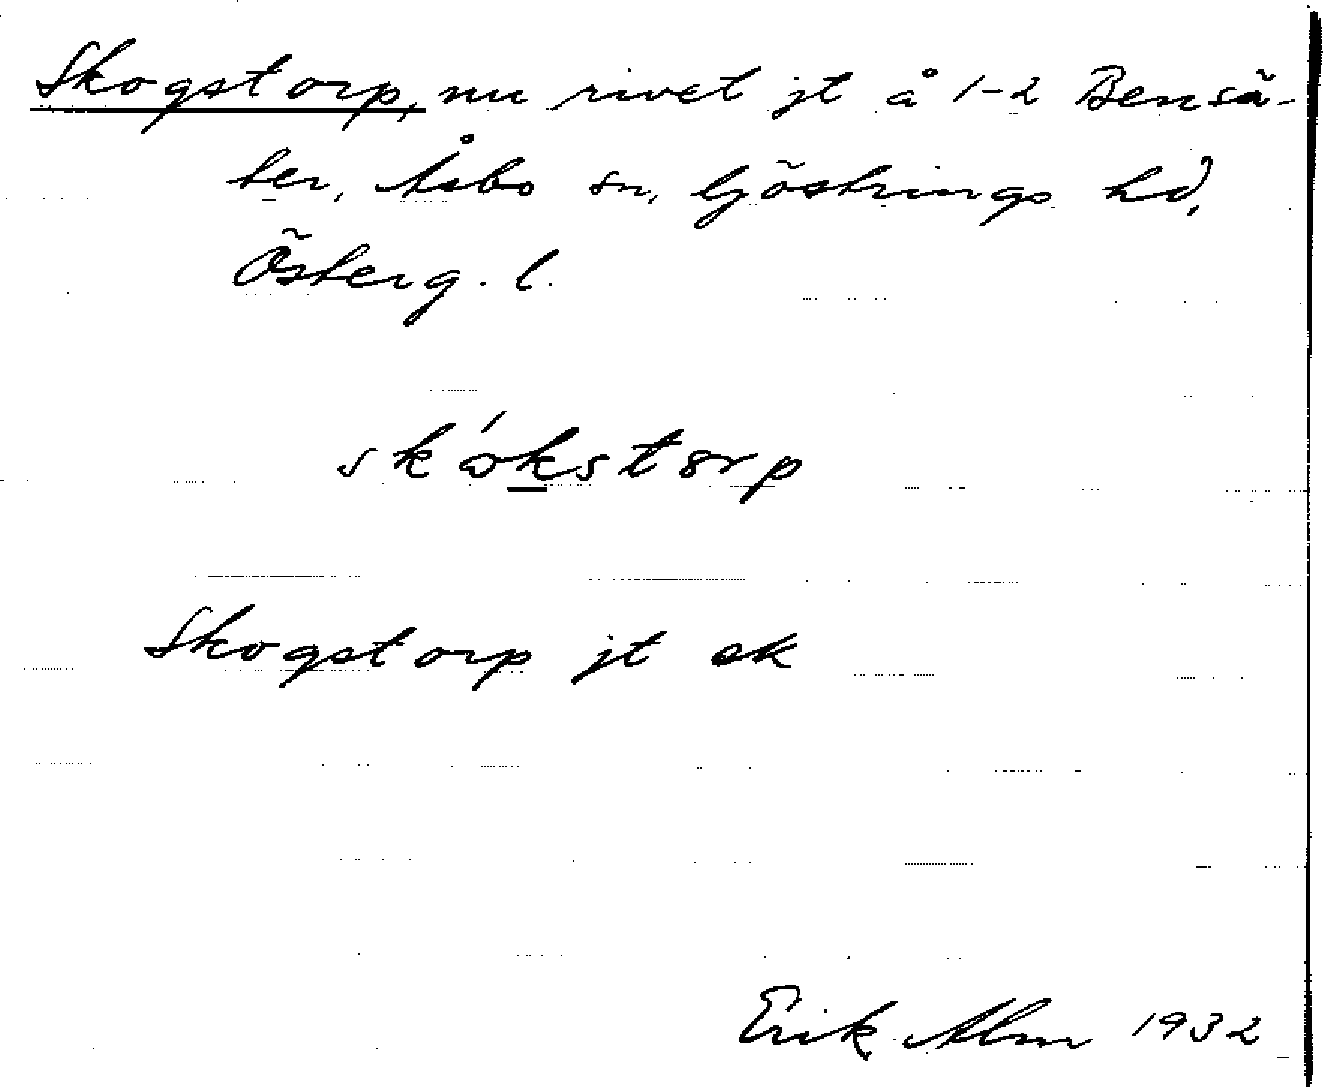 Skogstorp, nu rivet jt å 1-2 Bensä-
ter, Åsbo sn, Göstrings hd,
Österg. l.
skókstorp
Skogstorp jt ek
Erik Alm 1932